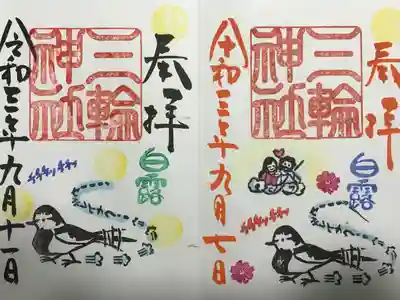 奉拝
三輪
神社
白露
令和三年九月十一日
奉拝
三輪
神社
白露
令和三年九月七日